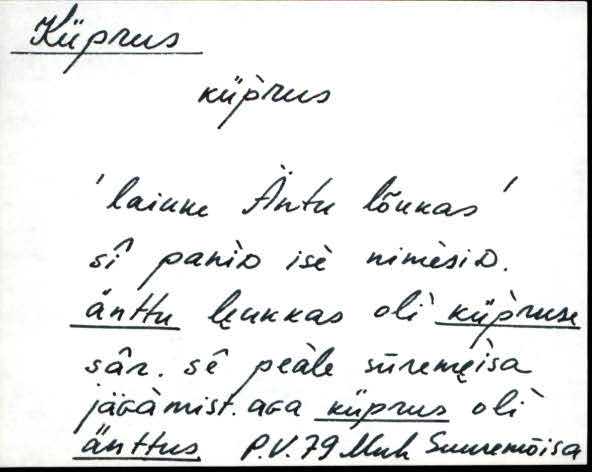 Küprus
küp̀rus
'laiuke Äntu lõukas'
sî panìᴅ isè nimèsiᴅ.
änttu leukkas olì küp̀ruse
sâr. sê peàle sūremeìsa
jäɢàmist. aɢa küprus olì
änttus P.V. 79 Muh Suuremõisa